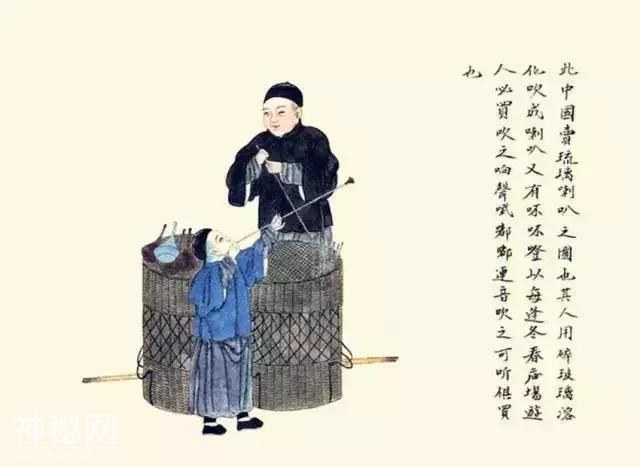 此中國賣琉璃喇叭之圖也其人用碎玻璃溶
化吹成喇叭又有吥吥噔以每逢冬春庙場遊
人必買吹之响聲哧嘟嘟連音吹之可听俱買
也
神秘网